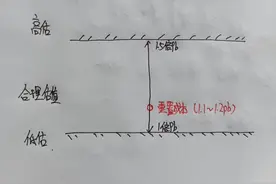 高估
1.5倍Pb
合理估值
重置成本 (1.1~1.2pb)
1倍Pb
低估